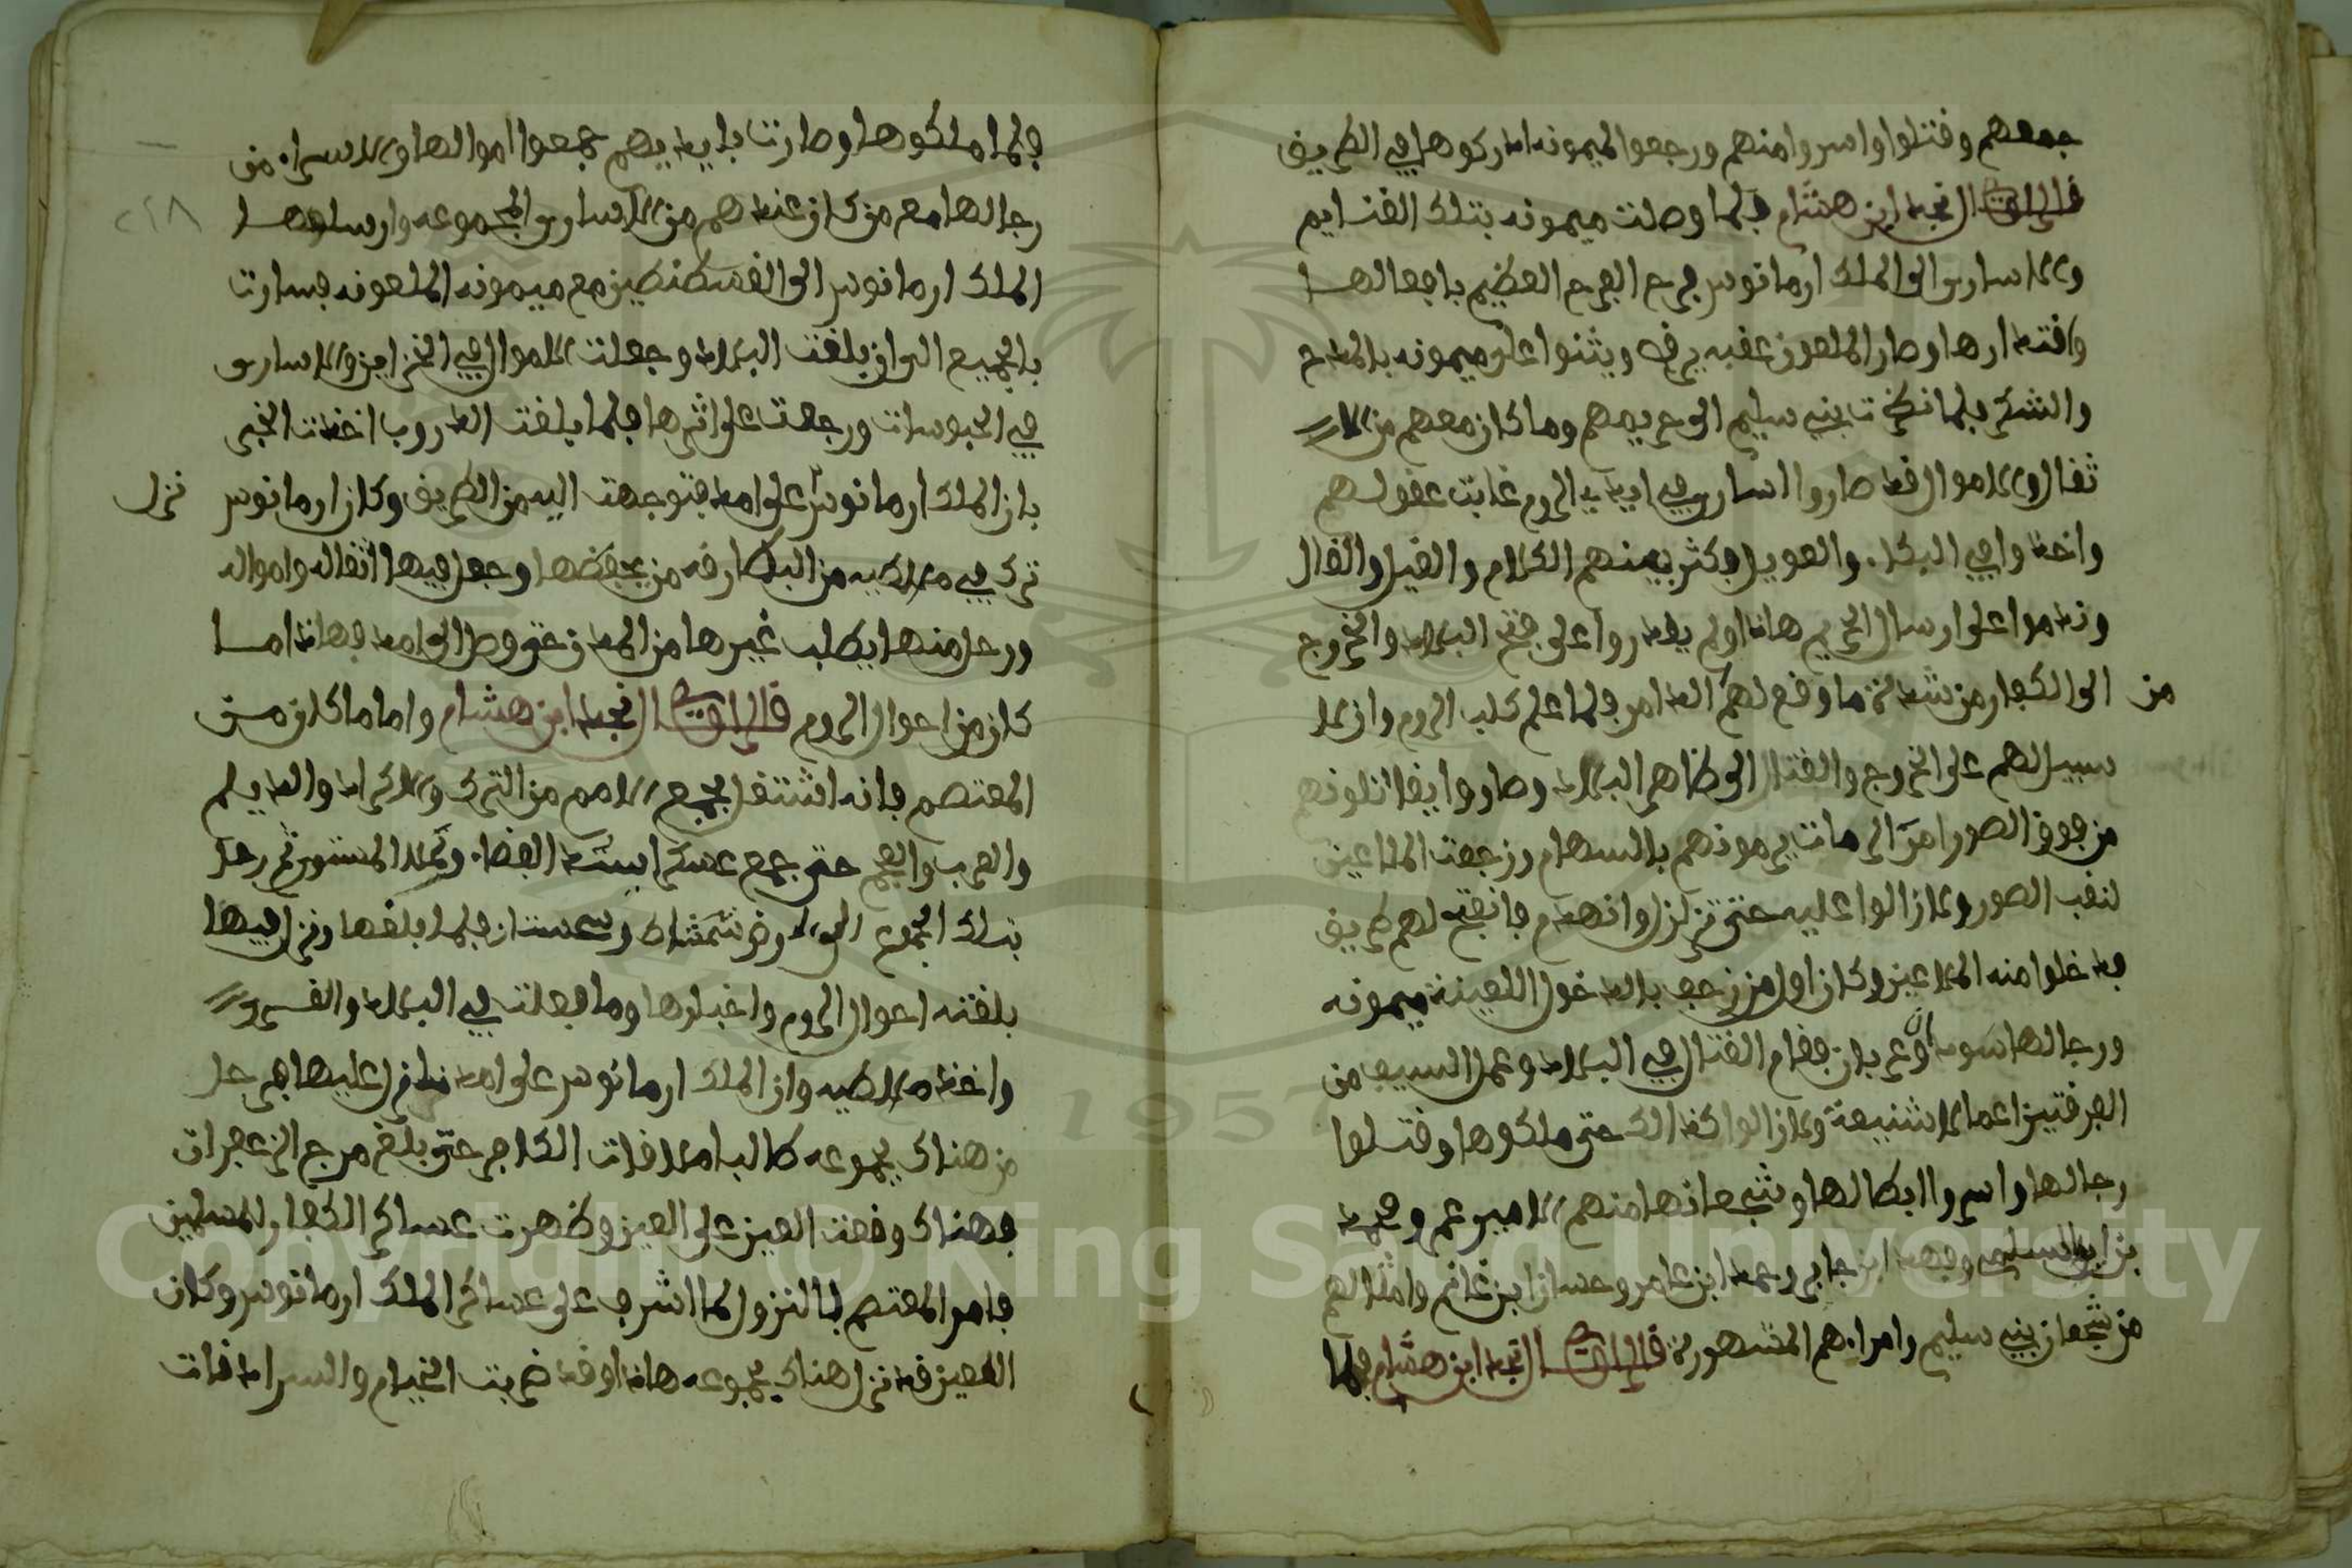 جمعهم وقتلوا واسروا منهم ورجعوا لميمونه ادركوها في الطريق
قال الراوي النجد ابن هشام فلما وصلت ميمونه بتلك الغنايم
والاسارى الى الملك ارمانوس فرح الفرح العظيم بافعالها
واقتدارها وصار الملعون عقبه يرقص ويثنوا على ميمونه بالمدح
والشكر فلما نظرت بني سليم الى حريمهم وما كان معهم من الا
ثقال والاموال قد صاروا اسارى في ايدي الروم غابت عقولهم
واخذوا في البكاء والعويل وكثر بينهم الكلام والقيل والقال
وندموا على ارسال الحريم هاذا ولم يقدروا على فتح البلاد والخروج
الى الكفار من شدة ما وقع لهم الدامر فلما علم كلب الروم وان لا
من
سبيل لهم على الخروج والقتال الى ظاهر البلاد وصاروا يقاتلونهم
من فوق الصور امر الرمات يرموذهم بالسهام وزحفت الملاعين
لنقب الصور ولازالوا عليه حتى تزلزل وانهدم فانفتح لهم طريق
فدخلوا منه الملاعين وكان اول من زحف بالدخول اللعينة ميمونه
ورجالها سودان وعربان فقام القتال في البلاد وعمل السيف من
الفرقتين اعمالا شنيعة ولازالوا كذالك حتى ملكوها وقتلوا
رجالها واسروا ابطالها وشجعانها منهم الامير عمر ومحمد
بن ابو السليم وفهد ابن جابر وحمد ابن عامر وحسان ابن غانم وامثالهم
من شجعان بني سليم وامراءهم المشهورة قال الراوي النجد ابن هشام فلما
فلما ملكوها وصارت بايديهم جمعوا اموالها والاسراء من
رجالها مع من كان عندهم من الاسارى المجموعه وارسلوها
٢١٨
الملك ارمانوس الى القسطنطين مع ميمونه الملعونه فسارت
بالجميع الى ان بلغت البلاد وجعلت الاموال في الخزاين والاسارى
في الحبوسات ورجعت على اثرها فلما بلغت الدروب اخذت الخبر
بان الملك ارمانوس على امد فتوجهت اليه من الطريق وكان ارمانوس
نزل
ترك في ملاطيه من البطارقه من يحفظها وجعل فيها اثقاله وامواله
ورحل منها يطلب غيرها من المدن حتى وصل الى امد فهاذا ما
كان من احوال الروم قال الراوي النجد ابن هشام واما ما كان من
المعتصم فانه اشتغل بجمع الامم من الترك والاكراد والديلم
والعرب والعجم حتى جمع عسكرا يسد الفضاء وتكلا المستور ثم رحل
بتلك الجموع الى الارض شمشاط وسمستان فلما بلغها ونزل فيها
بلغته احوال الروم واخبارها وما فعلت في البلاد والقرى
واخذ ملاطيه وان الملك ارمانوس على امد نازل عليها فرحل
من هناك بجموعه طالبا ملاقات الكافر حتى بلغ مرج الزعفران
فهناك وقعت العين على العين وظهرت عساكر الكفار للمسلمين
فامر المعتصم بالنزول لما اشرف على عساكر الملك ارمانوس وكان
اللعين قد نزل هناك بجموعه هاذا وقد ضربت الخيام والسرادقات